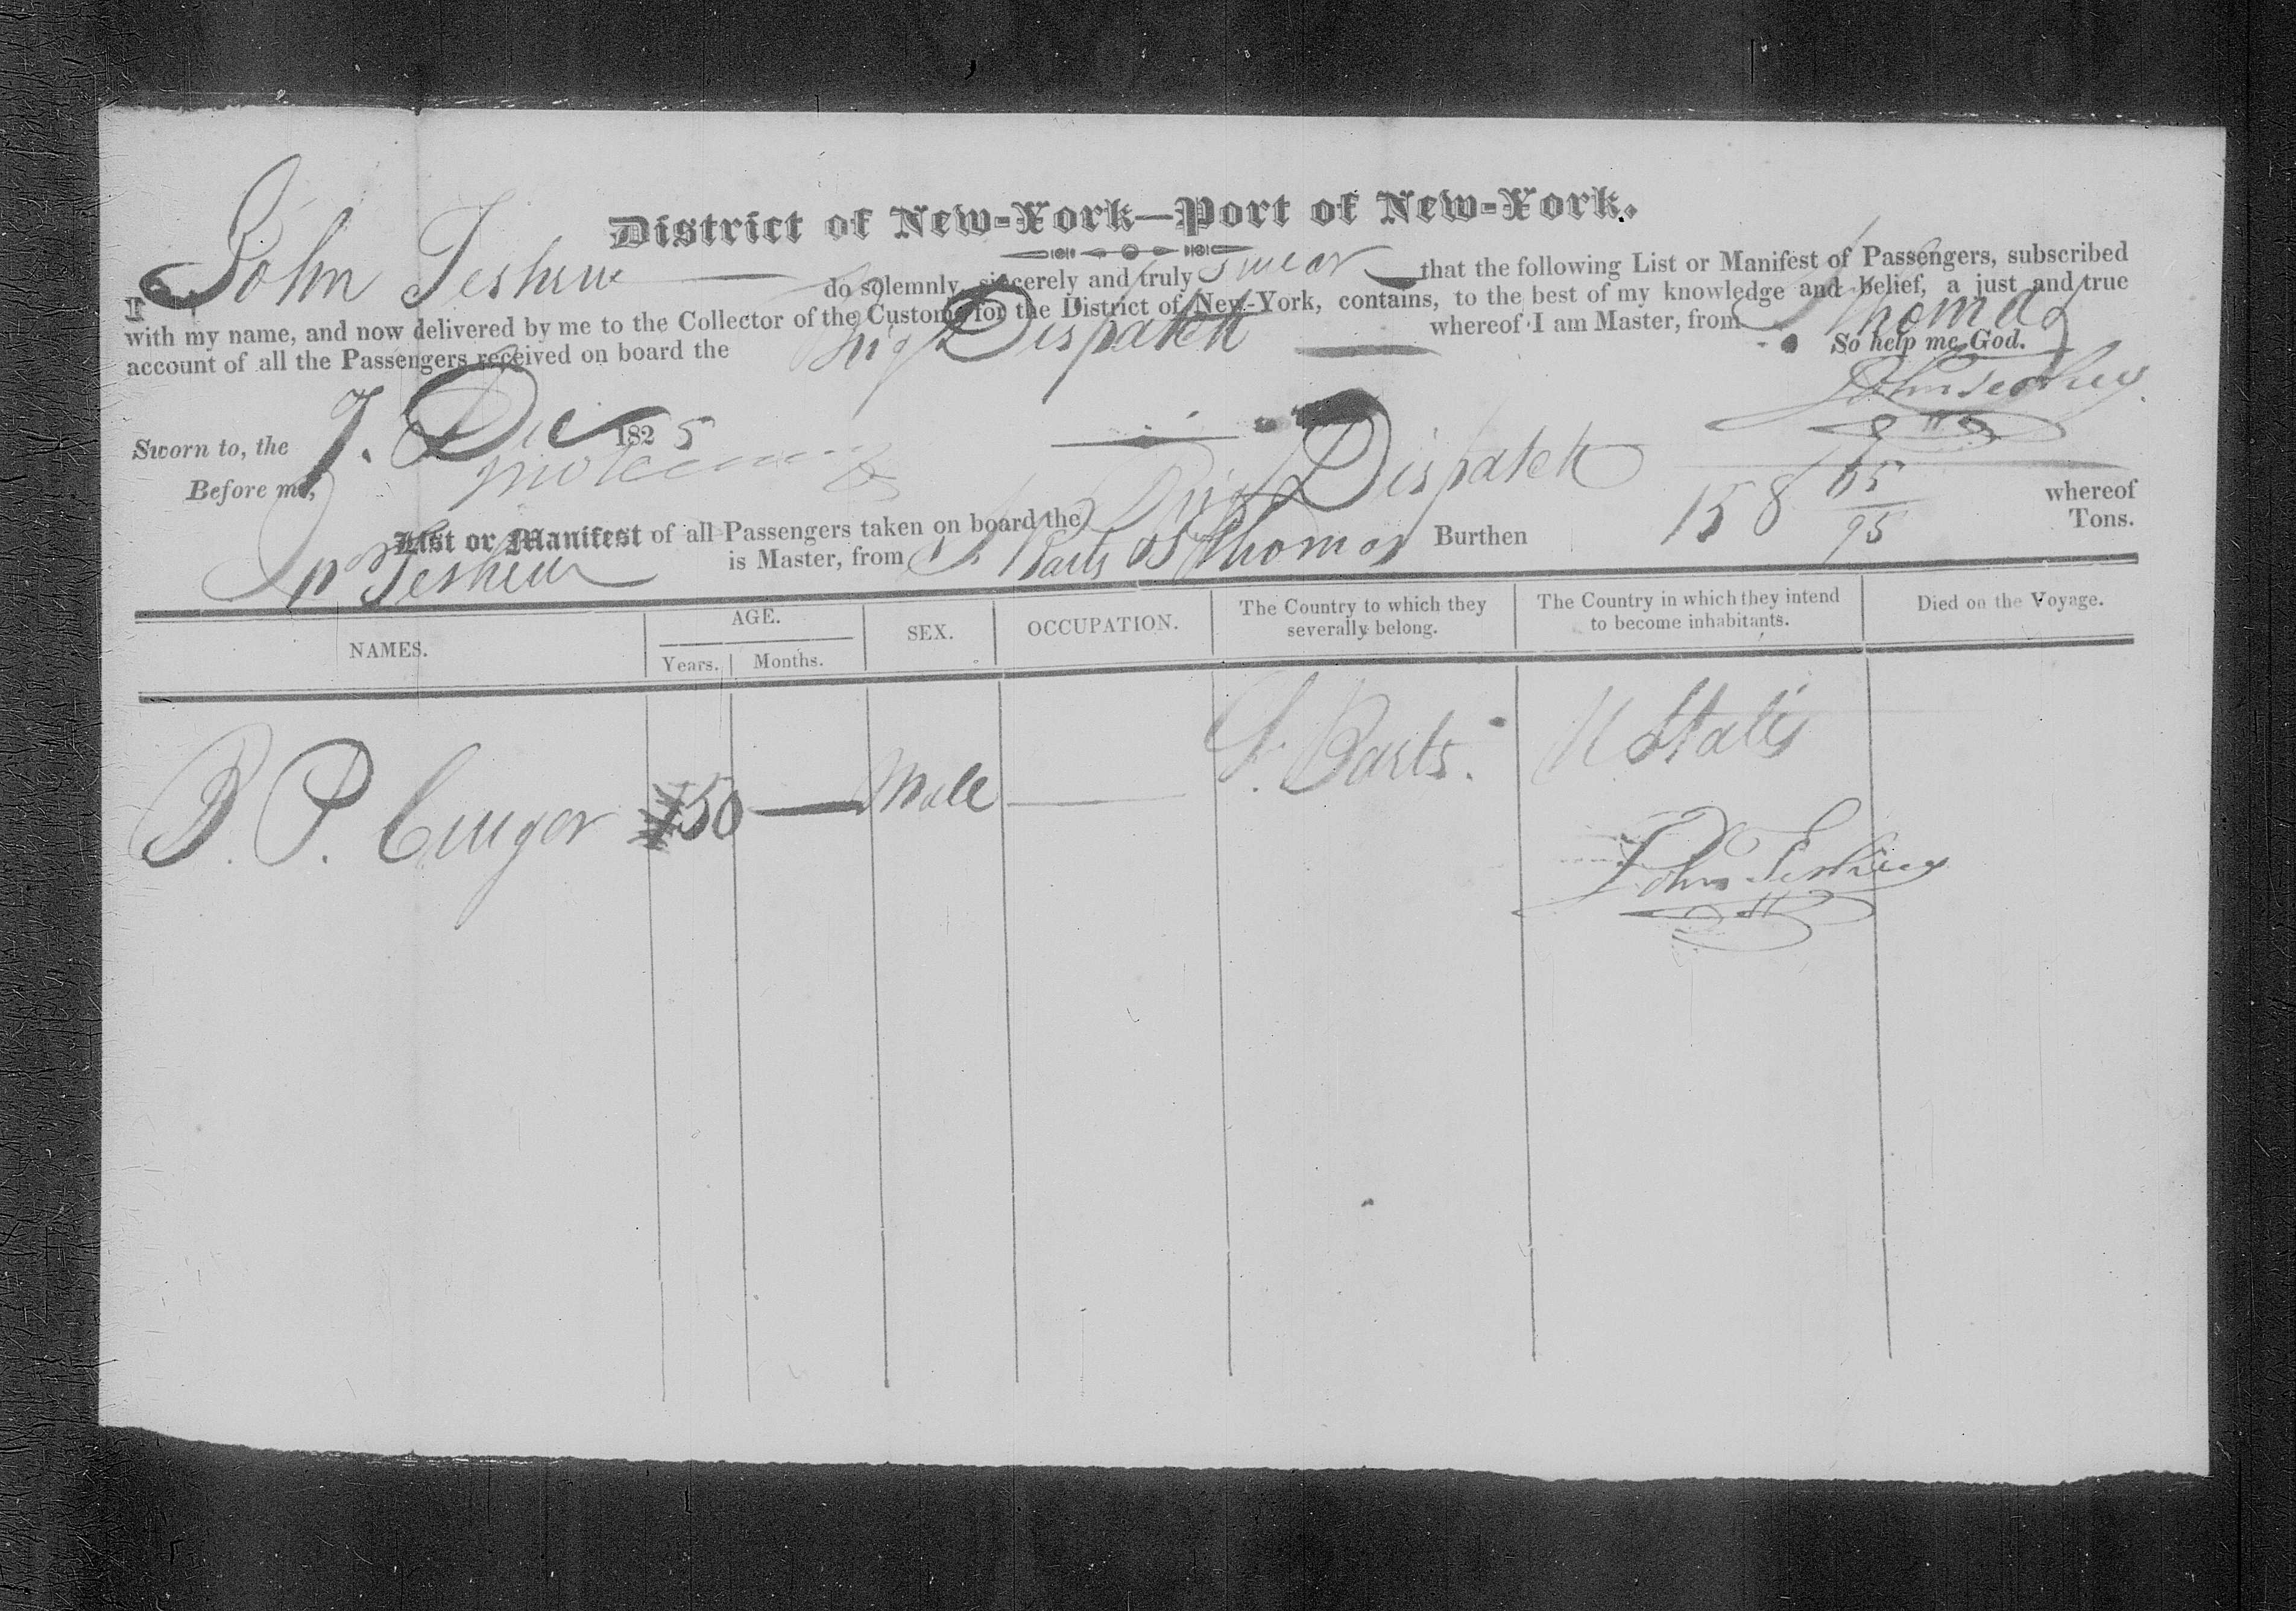 District of New-York—Port of New-York.
I John Teshew do solemnly, sincerely and truly swear that the following List or Manifest of Passengers, subscribed
with my name, and now delivered by me to the Collector of the Customs for the District of New-York, contains, to the best of my knowledge and belief, a just and true
account of all the Passengers received on board the Brig Dispatch whereof I am Master, from St Thomas
So help me God.
Sworn to, the 7. Dec 1825
Before me,
List or Manifest of all Passengers taken on board the Brig Dispatch whereof
Jno Teshew is Master, from St Barts & St Thomas Burthen 158 65/95 Tons.
NAMES. AGE. SEX. OCCUPATION. The Country to which they severally belong. The Country in which they intend to become inhabitants. Died on the Voyage.
Years. Months.
B. P. Cruger 50 — Male — St. Barts. U States